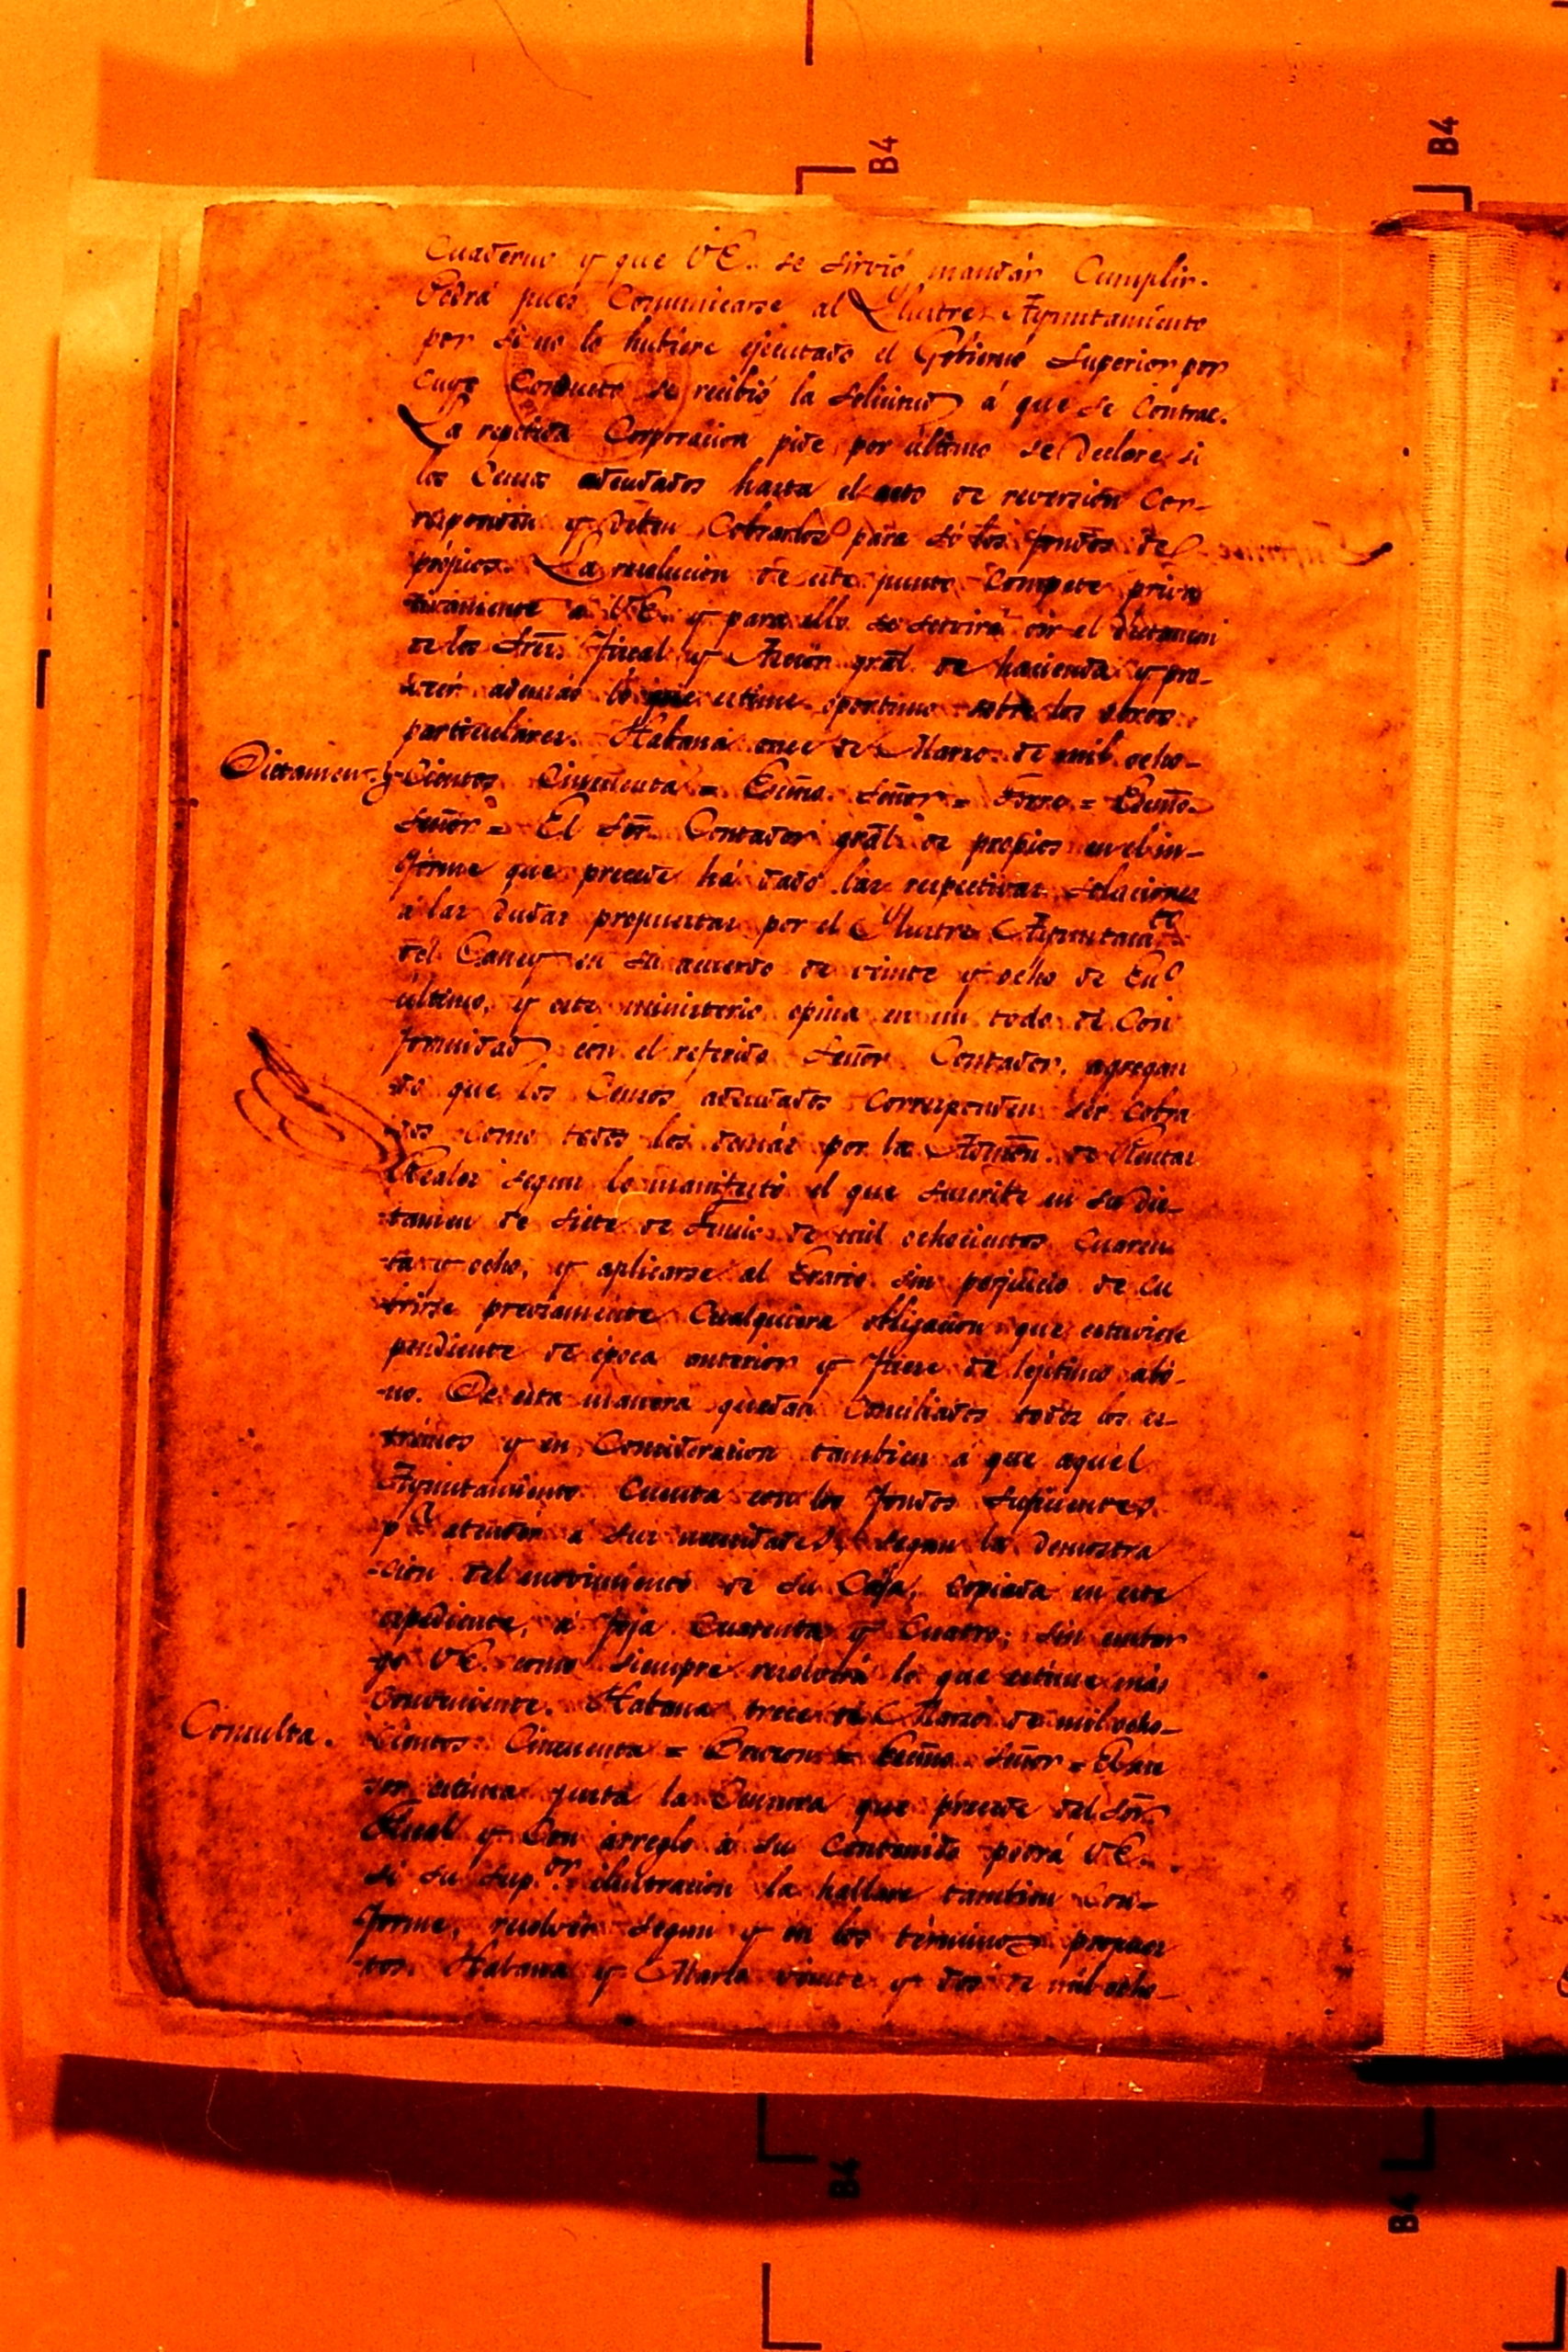 B4
B4
Cuaderno y que VE. se sirvió mandar Cumplir.
Podrá pues Comunicarse al Ylustre Ayuntamiento
por si no lo hubiere ejecutado el Gobierno Superior por
cuyo Conducto se recibió la solicitud á que se contrae.
La repetida Corporacion pide por ultimo se declare si
los Censos adeudados hasta el acto de reversion Cor-
responden y deben Cobrarlos para sí los fondos de
propios. La resolucion de este punto Compete priva
tivamente a VE. y para ello se servirá oir el dictamen
de los Sres. Fiscal y Asesor gral. de hacienda y pro-
veer además lo que estime oportuno sobre los otros
particulares. Habana once de Marzo de mil ocho-
Dictamen.
cientos Cincuenta = Excmo. Señor = = Excmo.
Señor = El Sor. Contador gral. de propios en el in-
forme que precede há dado las respectivas soluciones
a las dudas propuestas por el Ylustre Ayuntam.to
del Caney en su acuerdo de veinte y ocho de En.o
ultimo, y este ministerio opina en un todo de Con
formidad con el referido Señor Contador, agregan
do que los Censos adeudados corresponden ser cobra
dos como todos los demás por la Admon. de Rentas
Reales segun lo manifestó el que suscribe en su dic-
tamen de siete de Junio de mil ochocientos Cuaren
ta y ocho, y aplicarse al Erario sin perjuicio de cu
brirse previamente Cualquiera obligacion que estuviese
pendiente de época anterior y fuere de lejitimo abo-
no. De esta manera quedan Conciliados todos los es-
tremos y en Consideracion tambien á que aquel
Ayuntamiento Cuenta con los fondos suficientes
p.a atender a sus necesidades, segun la demostra
cion del movimiento de su Caja, copiada en este
espediente, a foja Cuarenta y Cuatro; sin embar
go VE. como siempre resolverá lo que estime más
Conveniente. Habana trece de Marzo de mil ocho-
Consulta.
cientos Cincuenta = = Excmo. Señor = El ase
sor estima justa la Censura que precede del Sor.
Fiscal y Con arreglo á su Contenido podrá VE.
si su Sup.or ilustracion la hallare tambien Con-
forme, resolver segun y en los terminos propues
tos. Habana y Marzo veinte y dos de mil ocho-
B4
B4